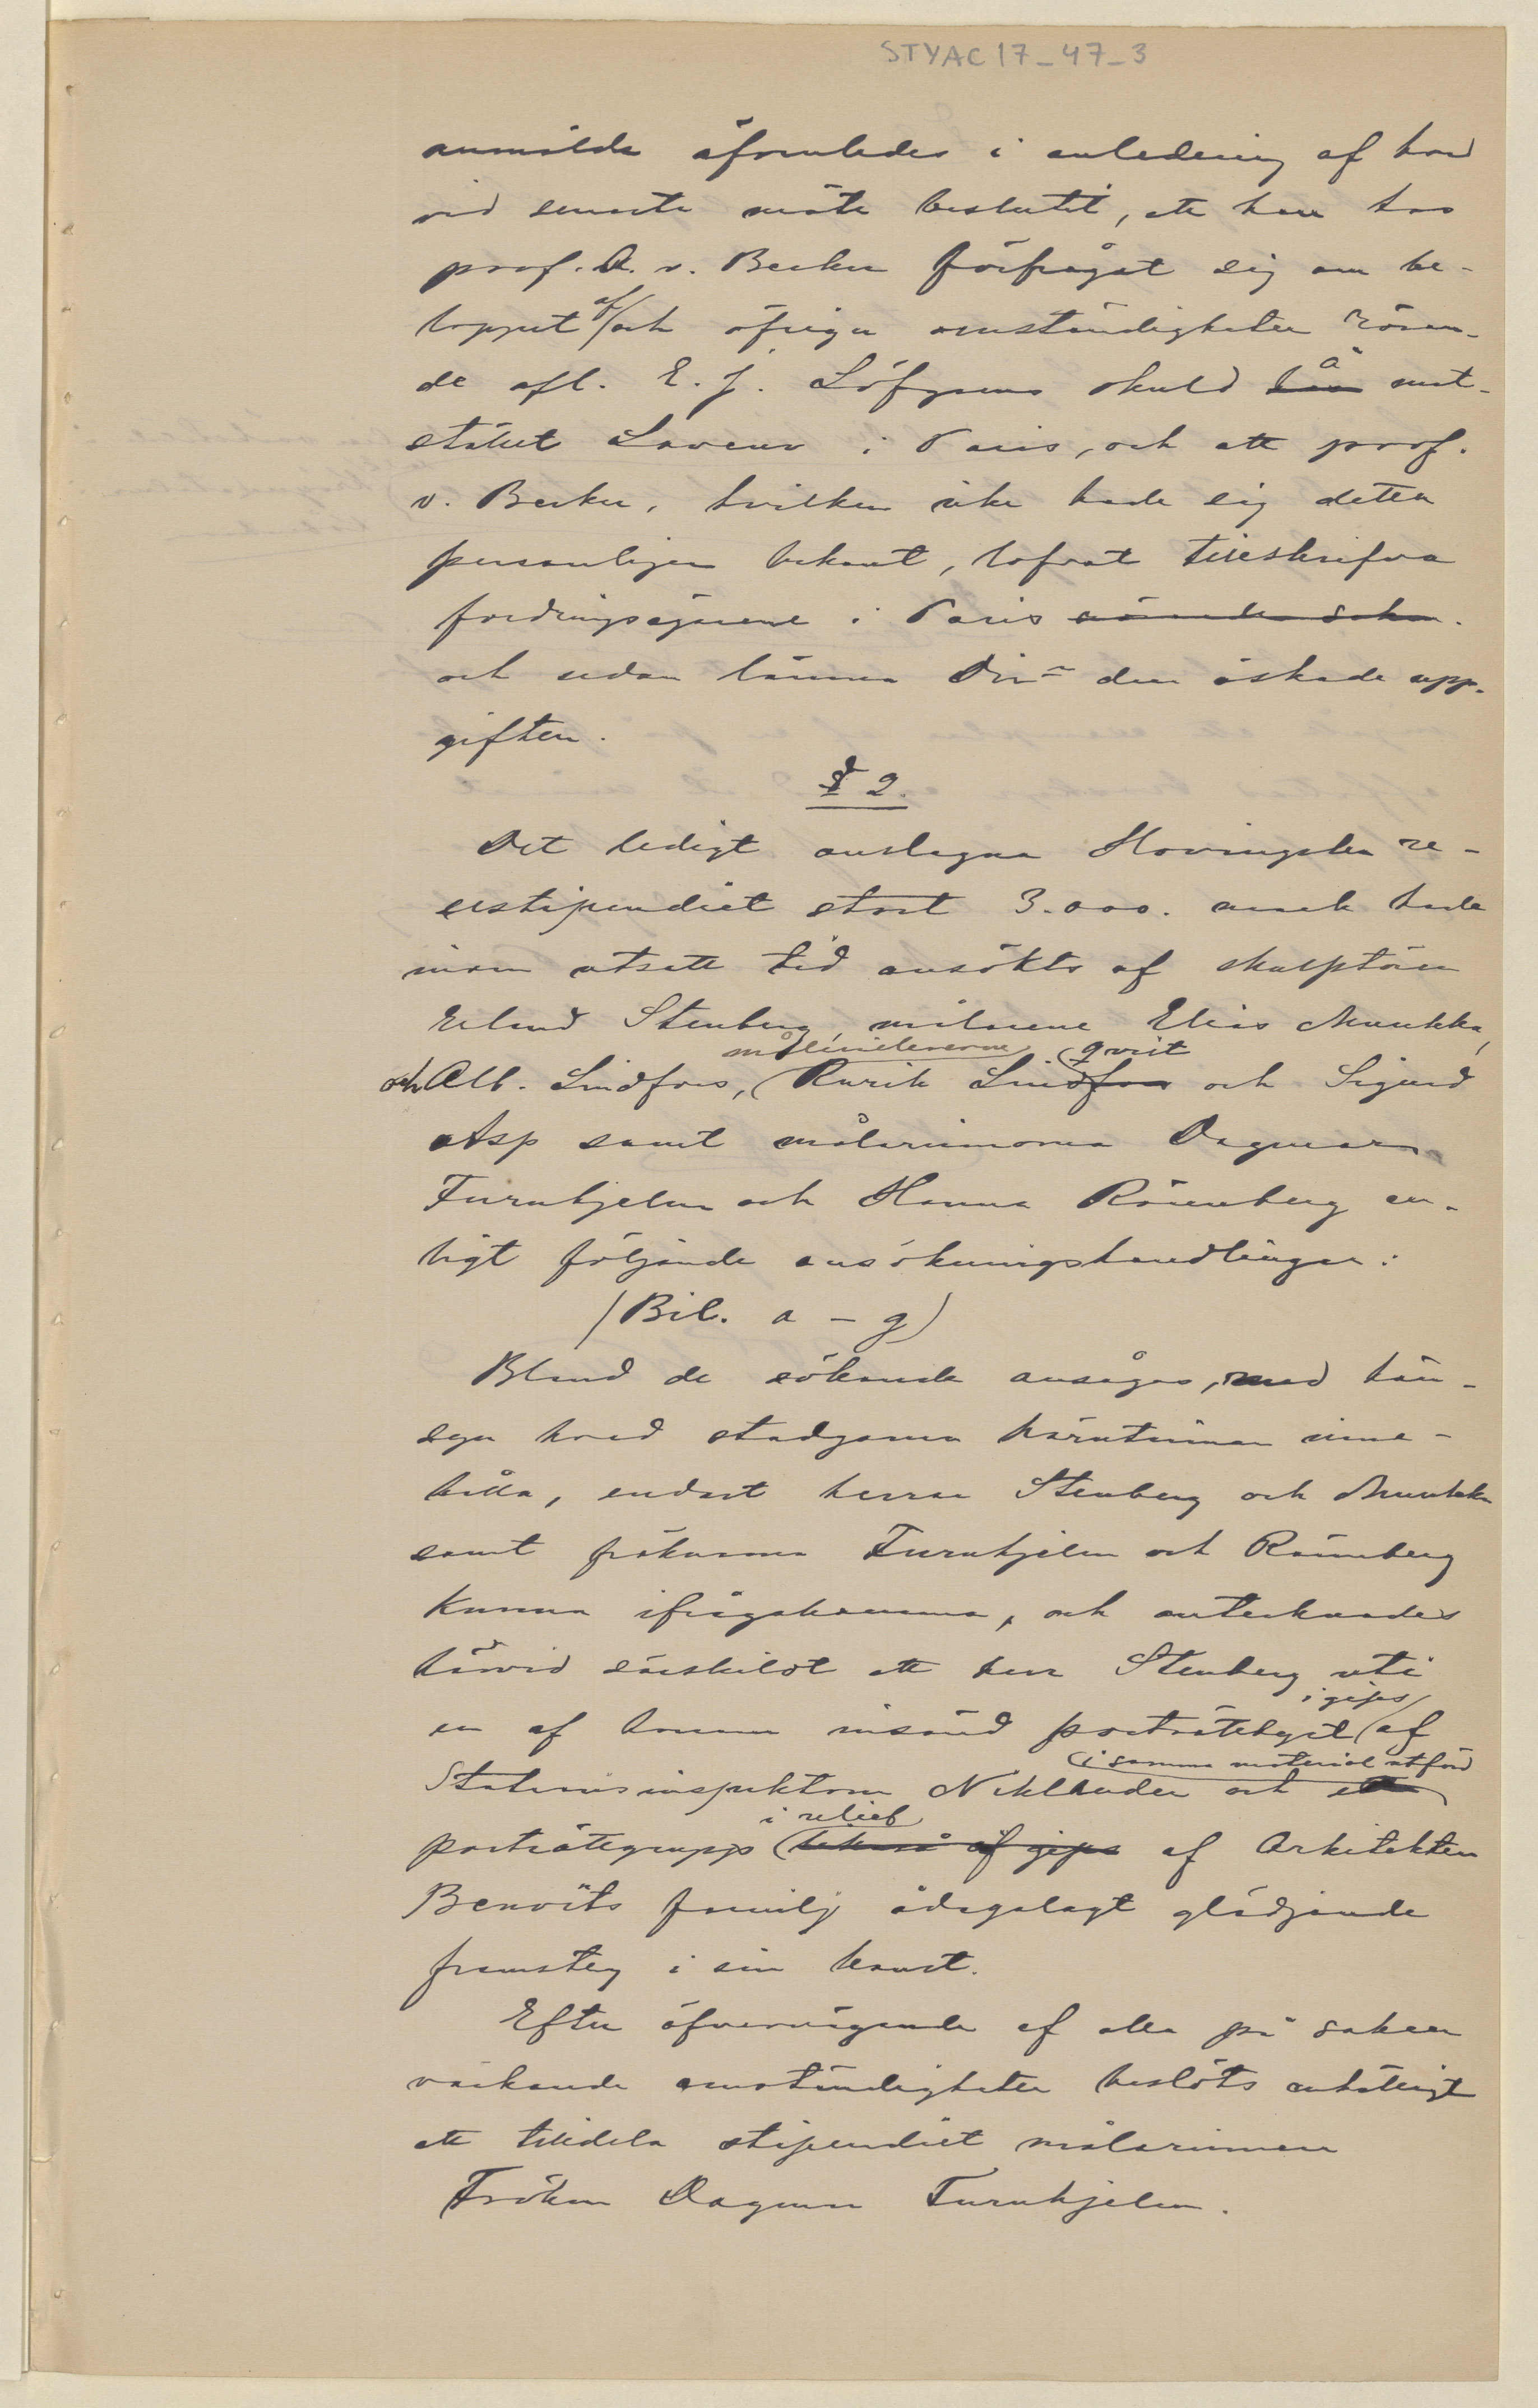 STYAC17_47_3
anmälde äfvenledes i anledning af hvad
vid senaste möte beslutit, att han hos
prof. A. v. Becker förfrågat sig om be-
loppet af och öfriga omständigheter röran-
de afl. E. J. Löfgrens skuld å mat-
stället Laveur i Paris, och att prof.
v. Becker, hvilken icke hade sig detta
personligen bekant, lofvat tillskrifva
fordringsägarene i Paris rörande saken.
och sedan lämna Dirn den åskade upp-
giften.
§ 2.
Det ledigt anslagna Hovingska re-
sestipendiet stort 3.000. mark hade
inom utsatt tid ansökts af skulptören
Erland Stenberg, målarene Elias Muukka,
målarielererne qvist
och Alb. Lindfors, Rurik Lindfors och Sigurd
Asp samt målarinnorna Dagmar
Furuhjelm och Hanna Rönnberg en-
ligt följande ansökningshandlingar:
(Bil. a – g)
Bland de sökande ansågos, med hän-
syn hvad stadgarna härutinnan inne-
hålla, endast herrar Stenberg och Muukka
samt fröknarna Furuhjelm och Rönnberg
kunna ifrågakomma, och antecknades
härvid särskildt att herr Stenberg uti
i gips
en af honom insänd porträttbyst af
i samma material utförd
Stationsinspektoren Niklander och ett
i relief
porträttgrupp af gips af Arkitekten
Benoits familj ådagalagt glädjande
framsteg i sin konst.
Efter öfvervägande af alla på saken
värkande omständigheter beslöts enhälligt
att tilldela stipendiet målarinnan
Fröken Dagmar Furuhjelm.